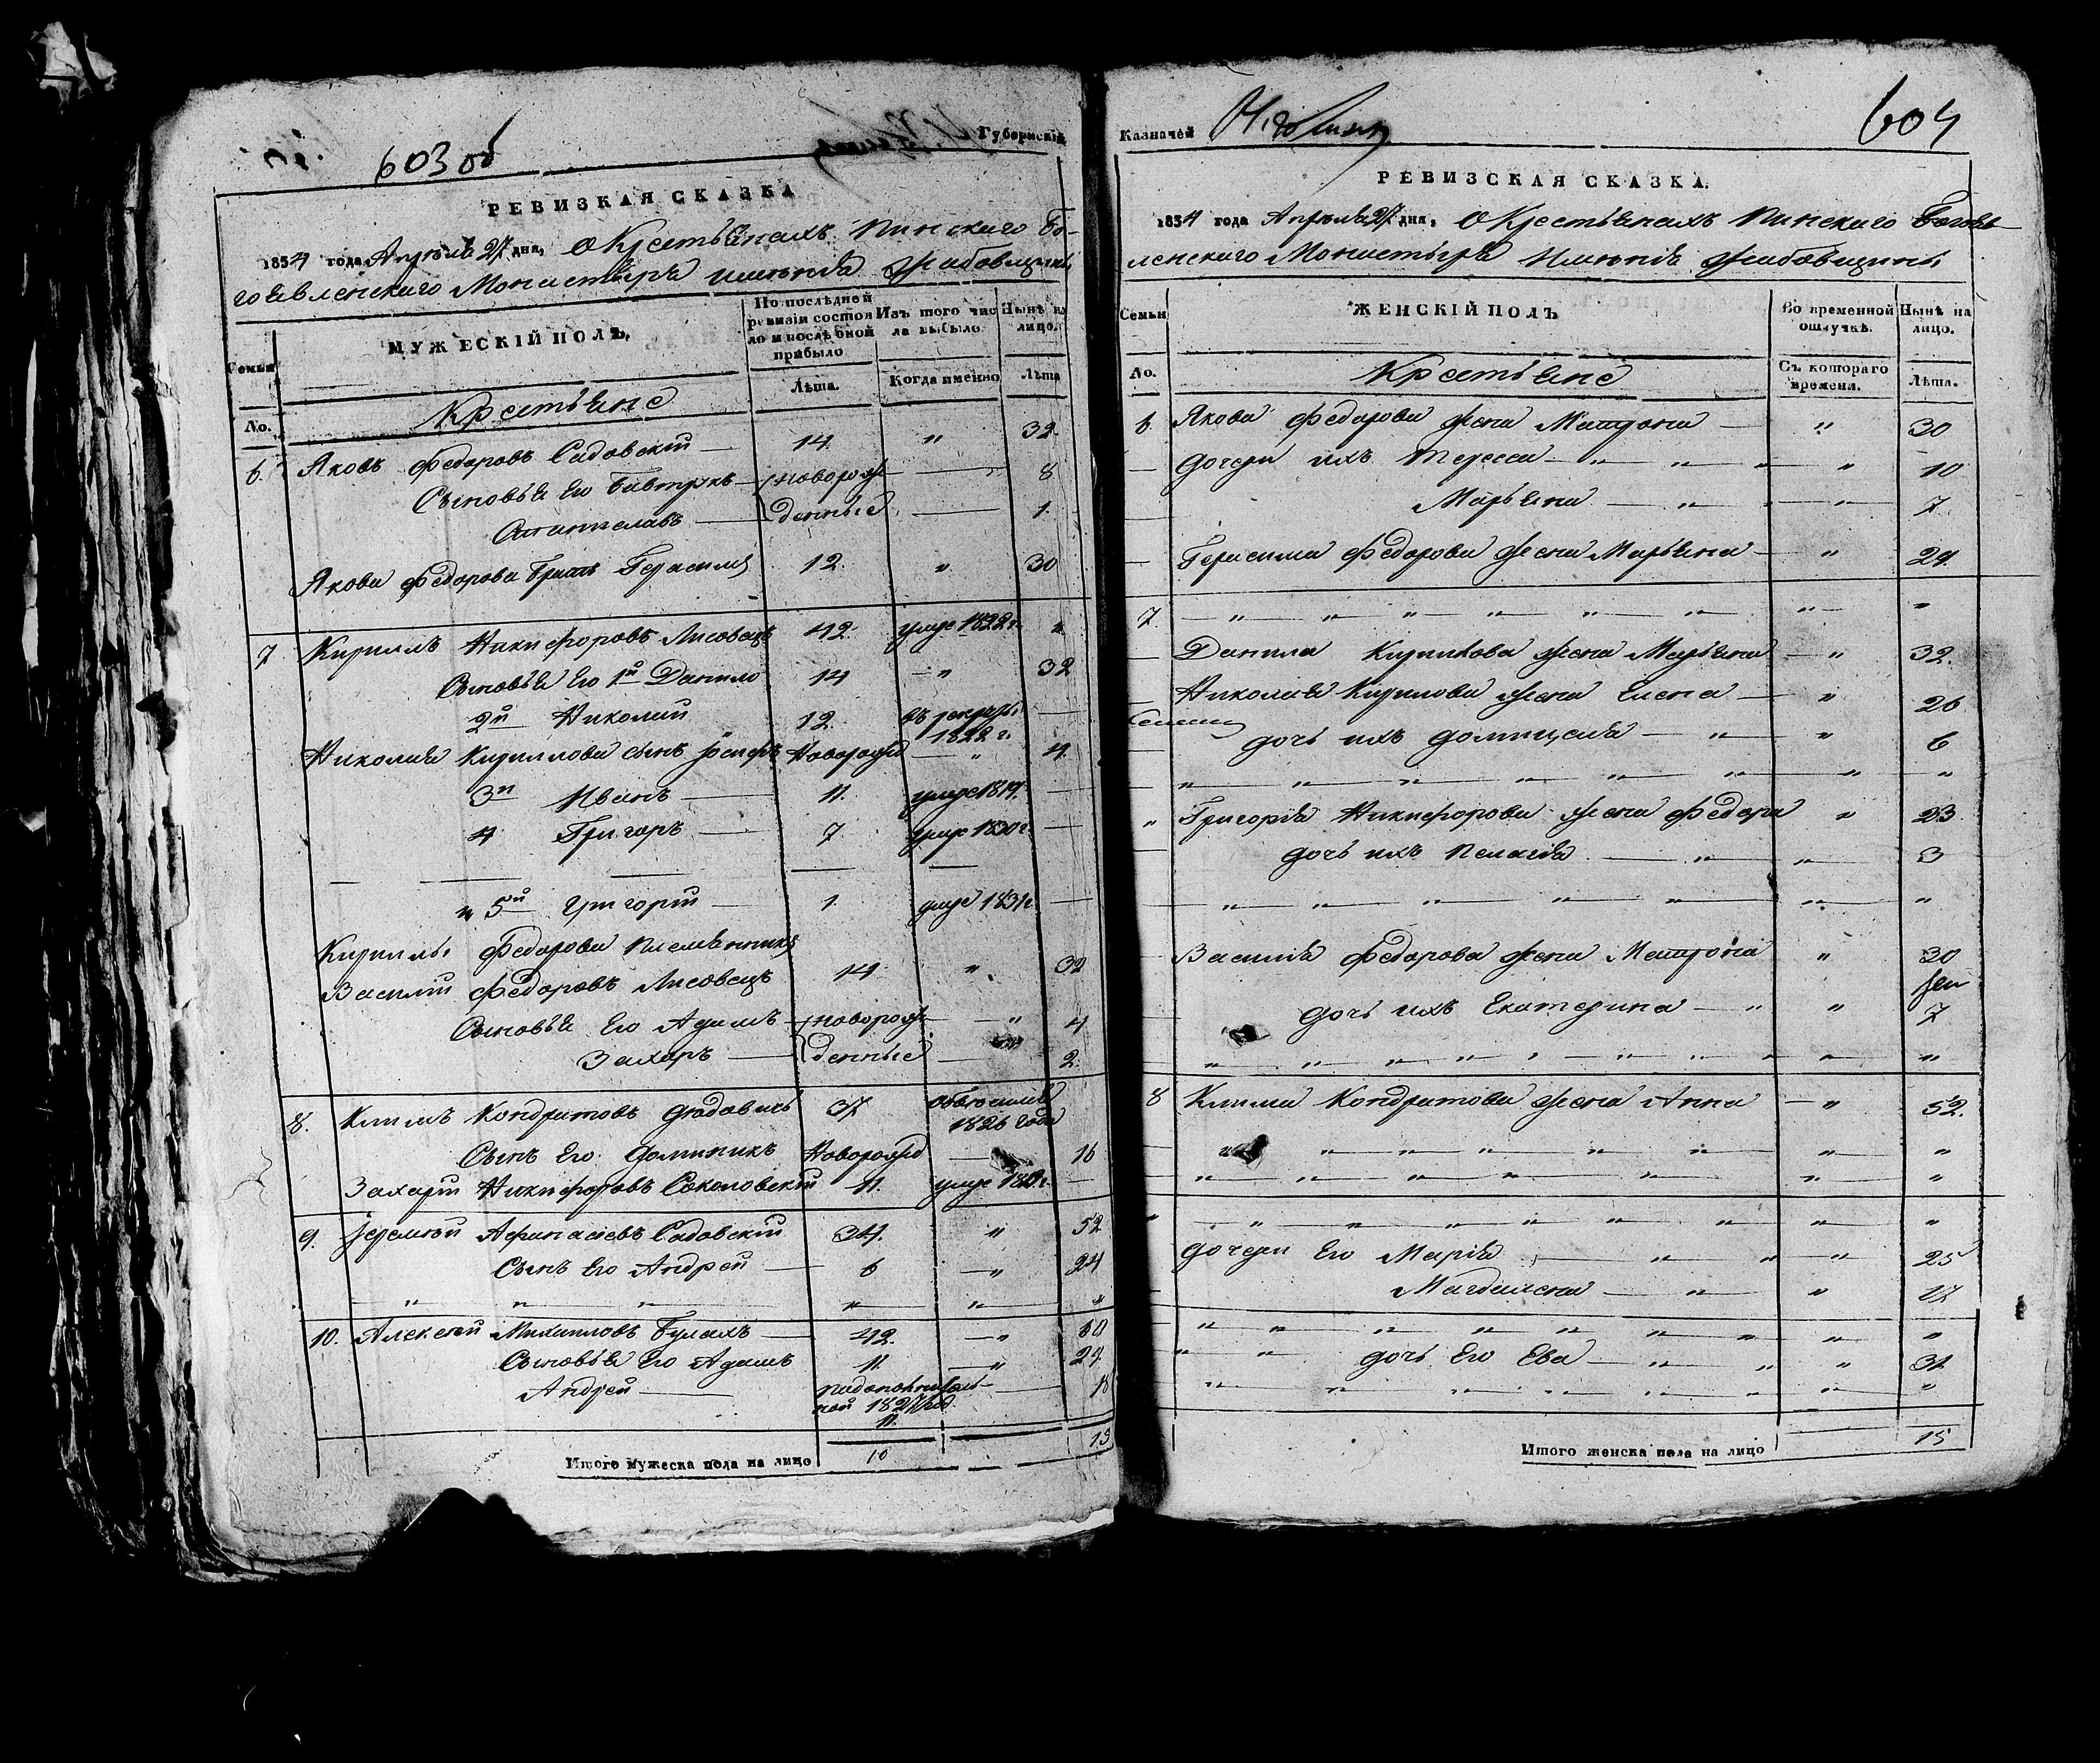 603 об
Губернскій
РЕВИЗКАЯ СКАЗКА
1834 года Апрѣля 27 дня, О Крестьянахъ Пинскаго Бо-
гоявленскаго Монастыря имѣнія Жабовщины
Семьи
МУЖЕСКІЙ ПОЛЪ,
По послѣдней ревизіи состоя ло и послѣ оной прибыло
Изъ того чис ла выбыло.
Нынѣ на лицо.
No.
Лѣта.
Когда именно
Лѣта
Крестьяне
6. Яковъ Федоровъ Садовскій 14. " 32.
Сыновья Его Бавтрукъ новорож 8
Станиславъ денные 1.
Якова Федорова братъ Герасимъ 12. " 30
7 Кириллъ Никифоровъ Лисовецъ 42. умре 1822 г. "
Сыновья Его 1й Данило 14 " 32
2й Николай 12. въ рекруты 1822 г.
Николая Кириллова сынъ Іосифъ Новорожд " 4.
3й Иванъ 11. умре 1817.
4 Григоръ 7 умре 1830 г.
" 5й Григорій 1. умре 1831 г.
Кириллы Федорова племянникъ
Василій Федоровъ Лисовецъ 14. " 32
Сыновья Его Адамъ новорож " 4
Захаръ денные 2.
8. Климъ Кондратовъ 37 1826 года
Сынъ Его Доминикъ Новорожд 16
Захарій Никифоровъ Соколовскій 11. умре
9. Іеремѣй Афанасіевъ Садовскій 34. " 52
Сынъ Его Андрей 6 " 24
" " " " " "
10. Алексѣй Михайловъ Булахъ 42. " 60
Сыновья Его Адамъ 11. " 29.
Андрей 1827 год. 11. 18
Итого мужеска пола на лицо 10 13
Казначей
604
РЕВИЗСКАЯ СКАЗКА.
1834 года Апрѣля 27 дня, О Крестьянахъ Пинскаго Богояв-
ленскаго Монастыря Имѣнія Жабовщины
Семьи
ЖЕНСКІЙ ПОЛЪ
Во временной отлучкѣ.
Нынѣ на лицо.
No.
Съ котораго времени.
Лѣта.
Крестьяне
6 Якова Федорова жена Матрона " 30
Дочери ихъ Тереса " " " " 10
Марьяна " " " 7.
Герасима Федорова жена Марьяна " 29.
7 " " " " " " " "
Данила Кирилова жена Марьяна " 32.
Николая Кирилова жена Елена " 26
дочь ихъ Домицеля " " 6
" " " " " " " "
" Григорія Никифорова жена Федора " 23.
дочь ихъ Пелагія " " 3
" " " " " " "
Василія Федорова жена Матрона " 30
дочь ихъ Екатерина " " 7
" " " " " " " " " "
8 Клима Кондратова жена Анна " 52.
" " " " " " " "
" " " " " " " "
" " " " " " " " "
Дочери Его Марія " " " 25
Магдалена " " 17
" " " " " " " " "
" " дочь Его Ева " " " 31
" " " " " " " "
Итого женска пола на лицо 15